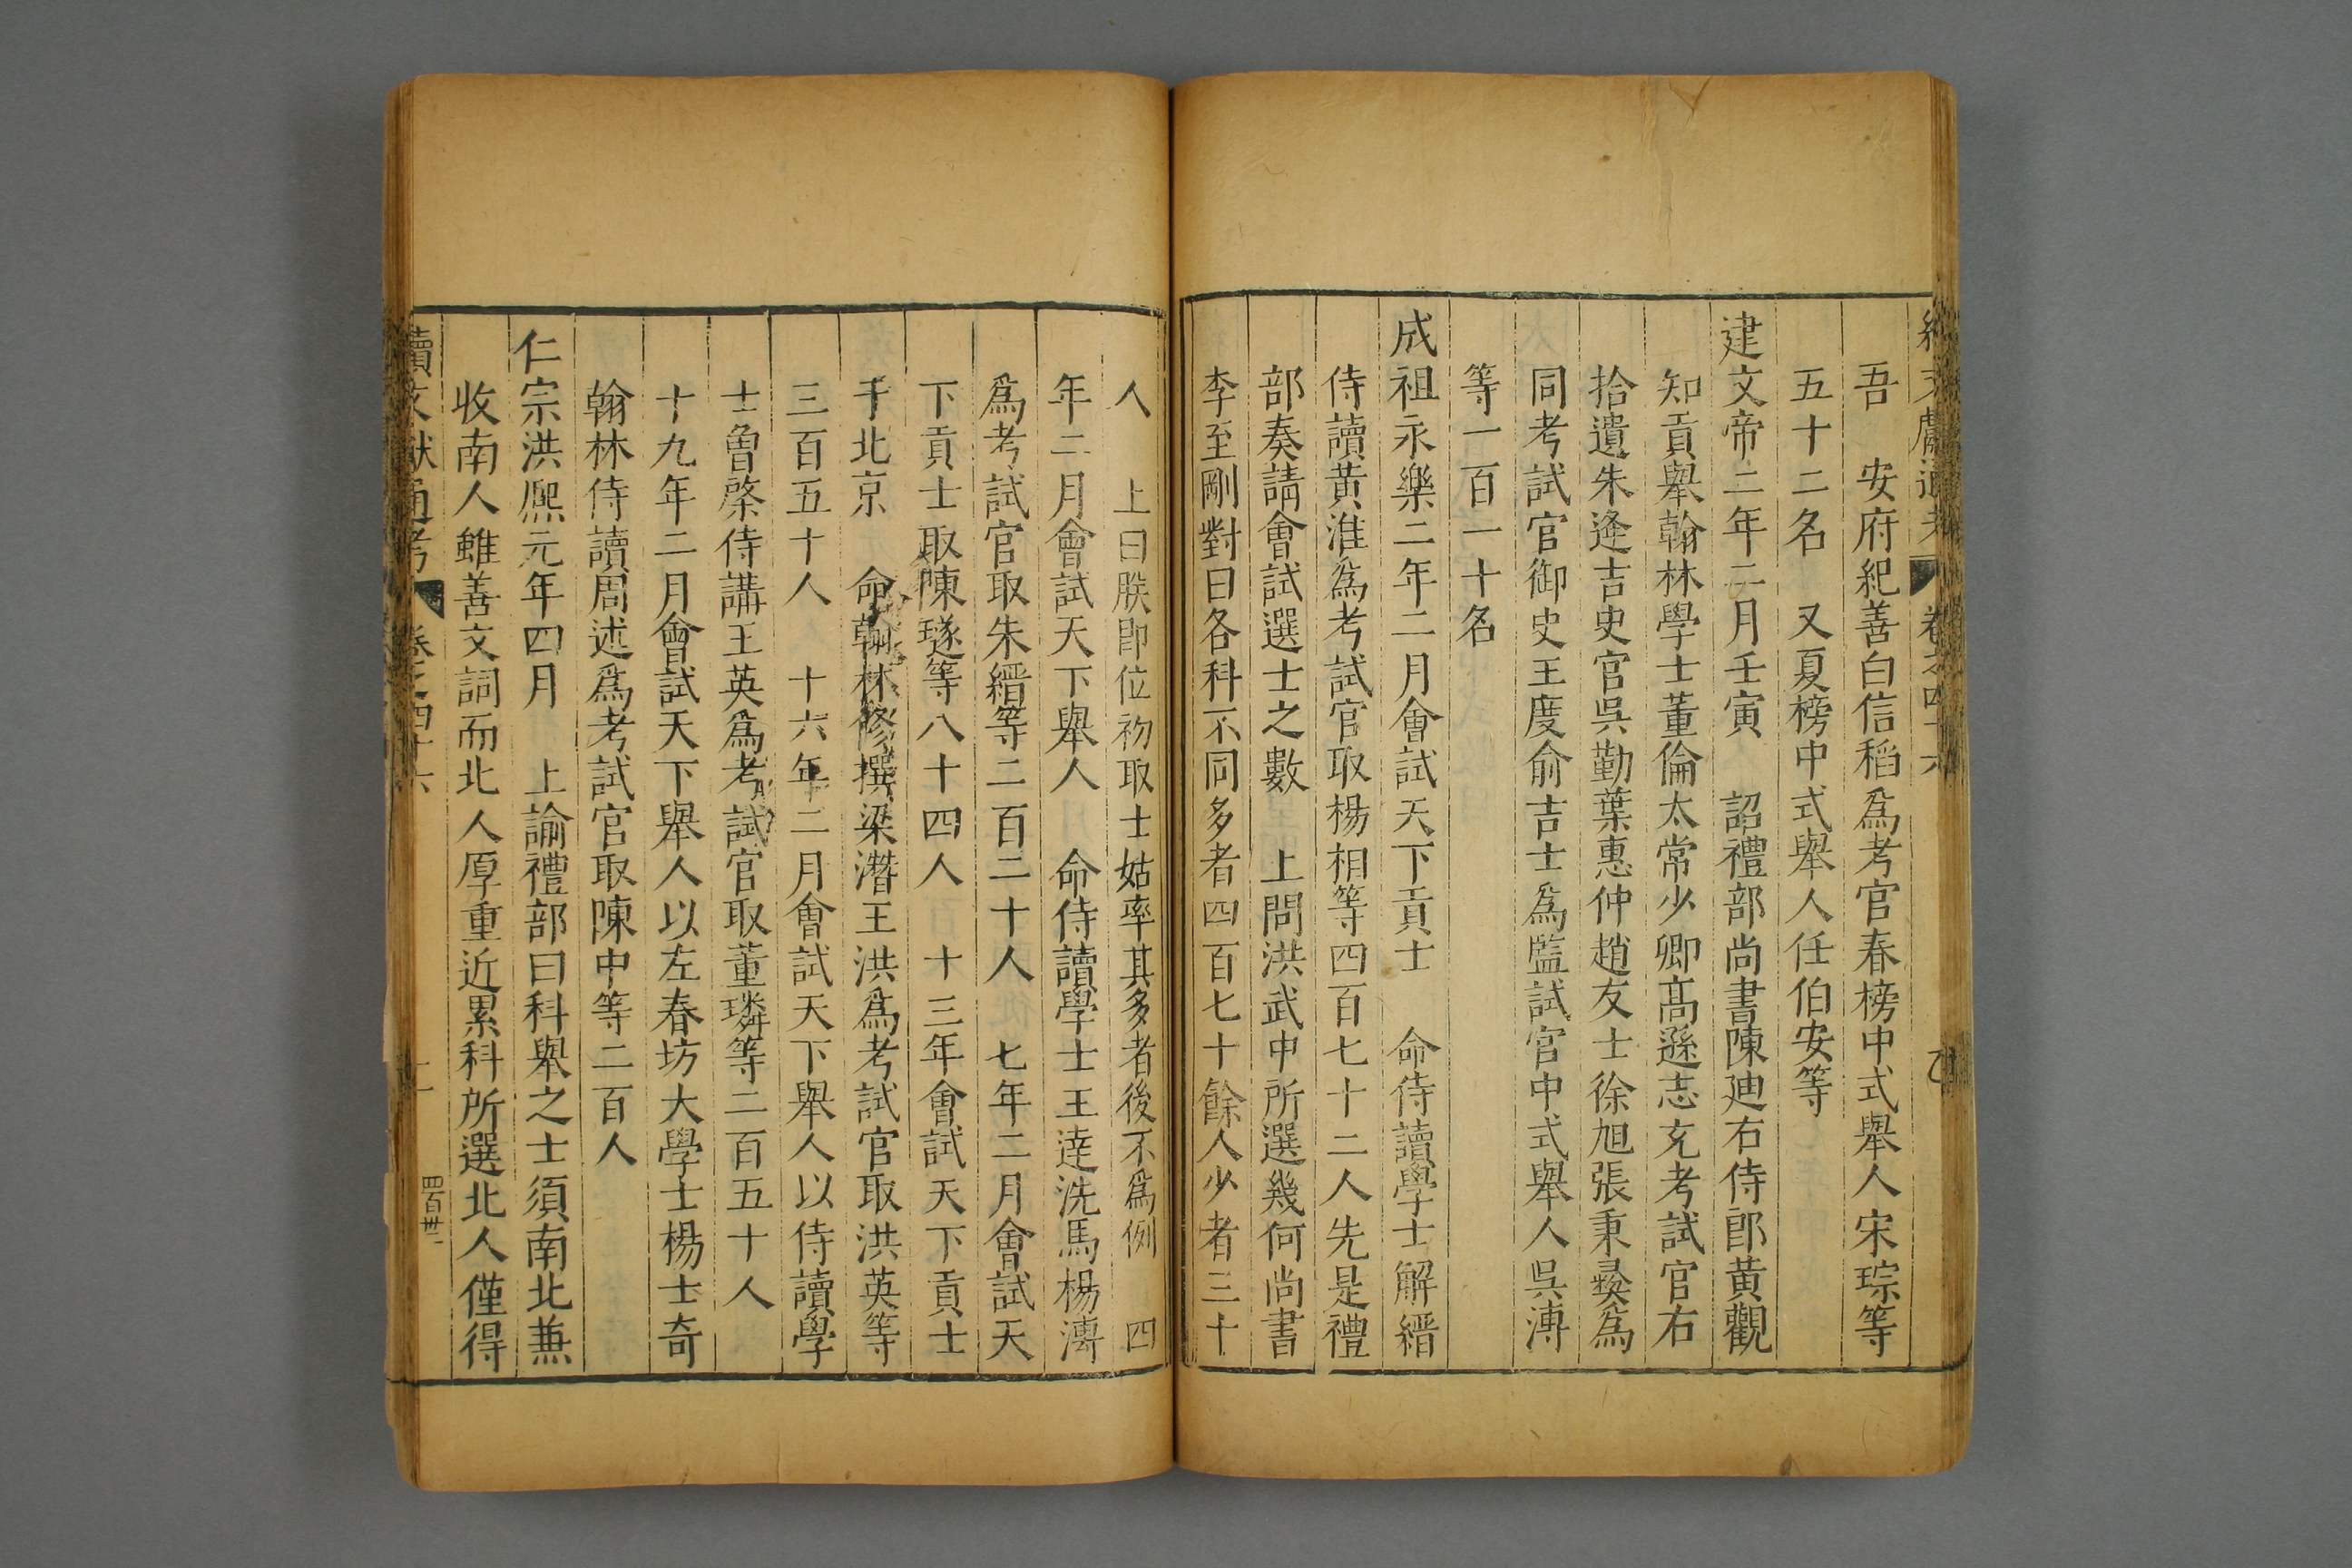 吾　安府紀善白信稻爲考官春榜中式舉人宋琮等
五十二名　又夏榜中式舉人任伯安等
建文帝二年二月壬寅　詔禮部尚書陳廸右侍郎黃觀
知貢舉翰林學士董倫太常少卿髙遜志充考試官右
拾遺朱逢吉史官吳勤葉惠仲趙友士徐旭張秉彛爲
同考試官御史王度俞吉士爲監試官中式舉人吳溥
等一百一十名
成祖永樂二年二月會試天下貢士　命侍讀學士解縉
侍讀黃淮爲考試官取楊相等四百七十二人先是禮
部奏請會試選士之數　上問洪武中所選幾何尚書
李至剛對曰各科不同多者四百七十餘人少者三十
人　上曰朕卽位初取士姑率其多者後不爲例　四
年二月會試天下舉人　命侍讀學士王達洗馬楊溥
爲考試官取朱縉等二百二十人　七年二月會試天
下貢士取陳璲等八十四人　十三年會試天下貢士
于北京　命翰林修撰梁潛王洪爲考試官取洪英等
三百五十人　十六年二月會試天下舉人以侍讀學
士曾棨侍講王英爲考試官取董璘等二百五十人
十九年二月會試天下舉人以左春坊大學士楊士奇
翰林侍讀周述爲考試官取陳中等二百人
仁宗洪熙元年四月　上諭禮部曰科舉之士須南北兼
收南人雖善文詞而北人厚重近累科所選北人僅得
續文獻通考　卷之四十六　二　四百卅二